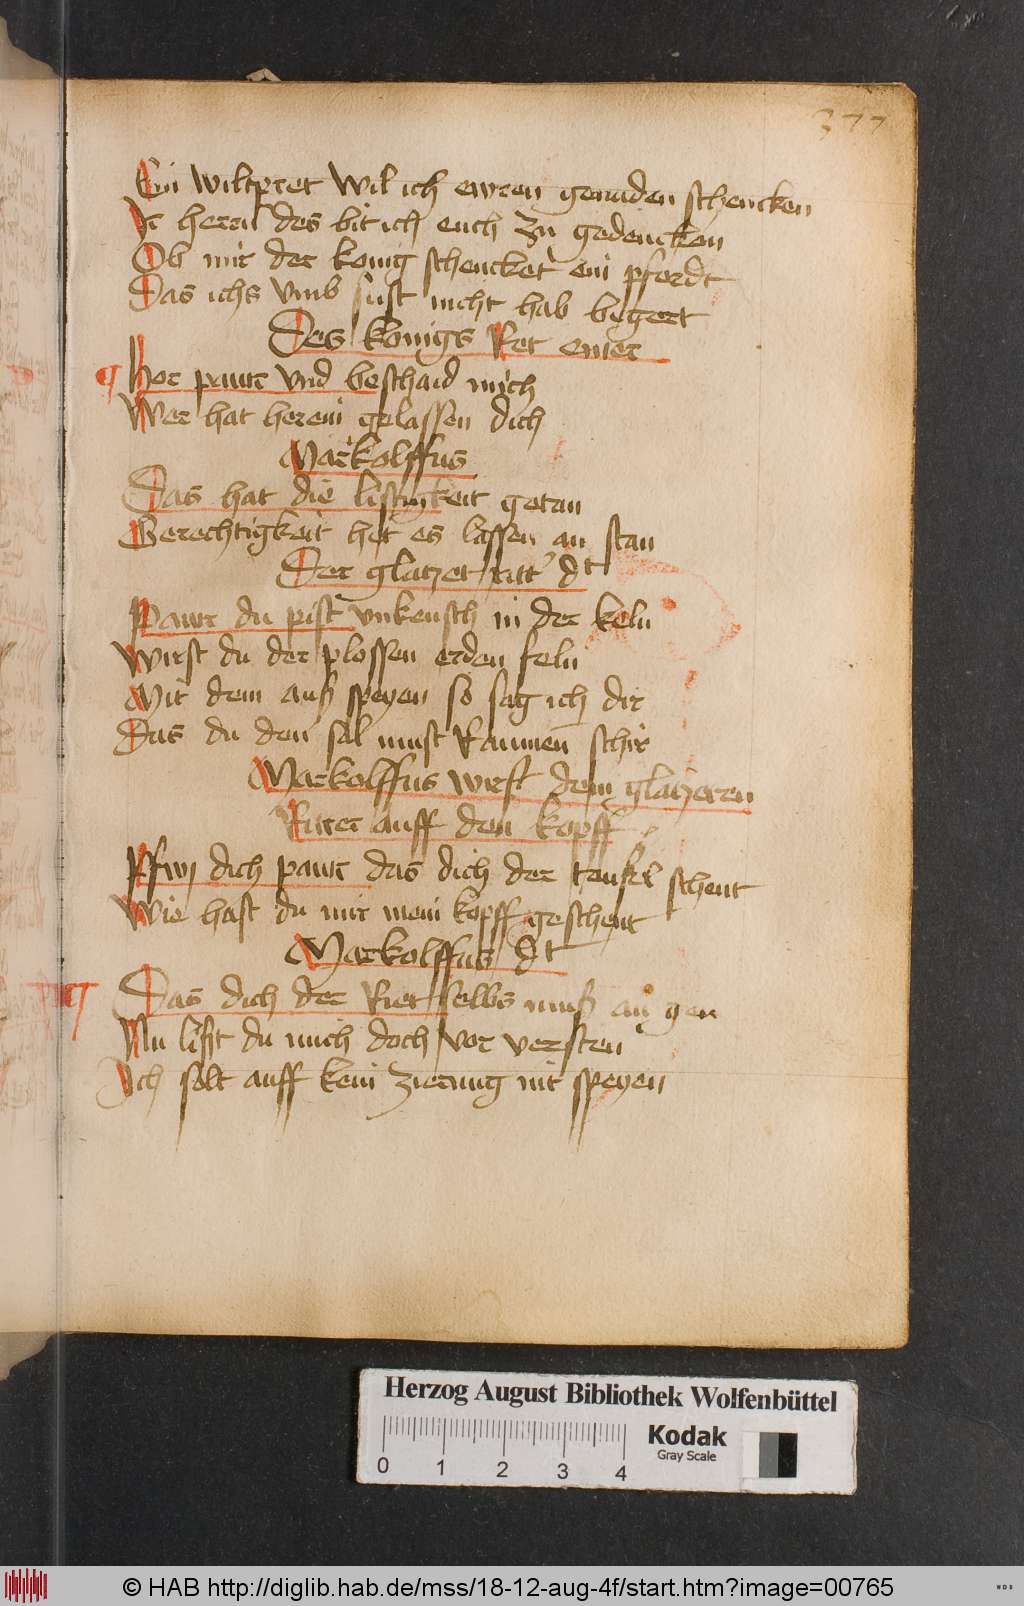 377
Ein wiltpret wil ich ewren genaden schencken
Ir herrn des bit ich euch zu gedencken
Ob mir der konig schencket ein pferdt
Das ichs vmb sust nicht hab begert
Des konigs Ret einer
Hor pawr vnd beschaid mich
Wer hat herein gelassen dich
Markolffus
Das hat die listigkeit getan
Gerechtigkeit het es lassen an stan
Der glatzet ritter dt
Pawr du pist vnkeusch in der keln
Wirst du der plossen erden feln
Mit dem auß speyen so sag ich dir
Das du den sal must Raumen schir
Markolffus wirft dem glatzeten
Ritter auff den kopff
Pfwj dich pawr das dich der teufel schent
Wie hast du mir mein kopff geschent
Markolffus dt
Das dich der Riet selbs muß an gen
Nu lißt du mich doch vor versten
Ich solt auff kein zierung nit speyen
Herzog August Bibliothek Wolfenbüttel
Kodak
Gray Scale
0 1 2 3 4
© HAB http://diglib.hab.de/mss/18-12-aug-4f/start.htm?image=00765